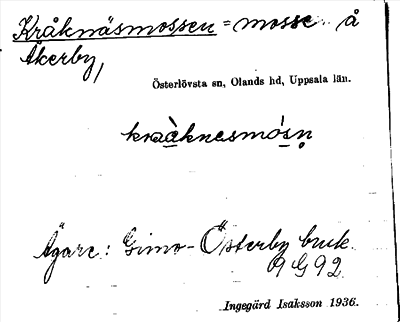 Kråknäsmossen = mosse å
Åkerby,
Österlövsta sn, Olands hd, Uppsala län.
kraàknesmósṇ
Ägare: Gimo-Österby bruk.
9 G 92
Ingegärd Isaksson 1936.